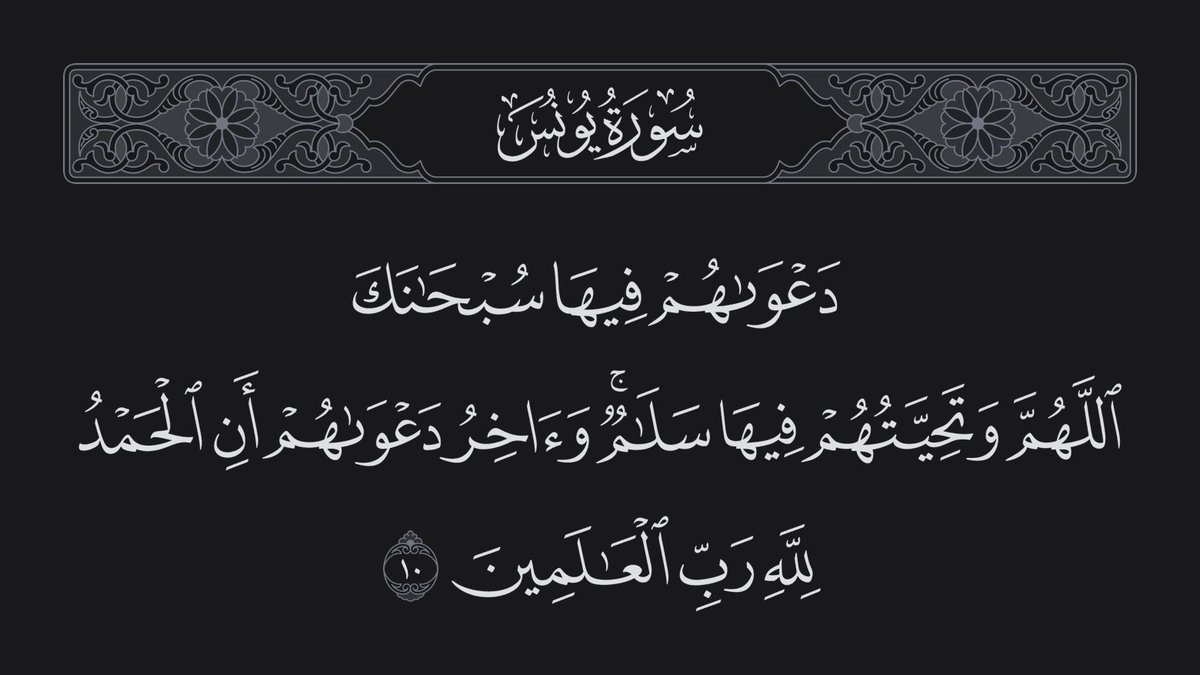 سُورَةُ يُونُسَ
دَعْوَىٰهُمْ فِيهَا سُبْحَٰنَكَ
ٱللَّهُمَّ وَتَحِيَّتُهُمْ فِيهَا سَلَٰمٌۭ ۚ وَءَاخِرُ دَعْوَىٰهُمْ أَنِ ٱلْحَمْدُ
لِلَّهِ رَبِّ ٱلْعَٰلَمِينَ ١٠